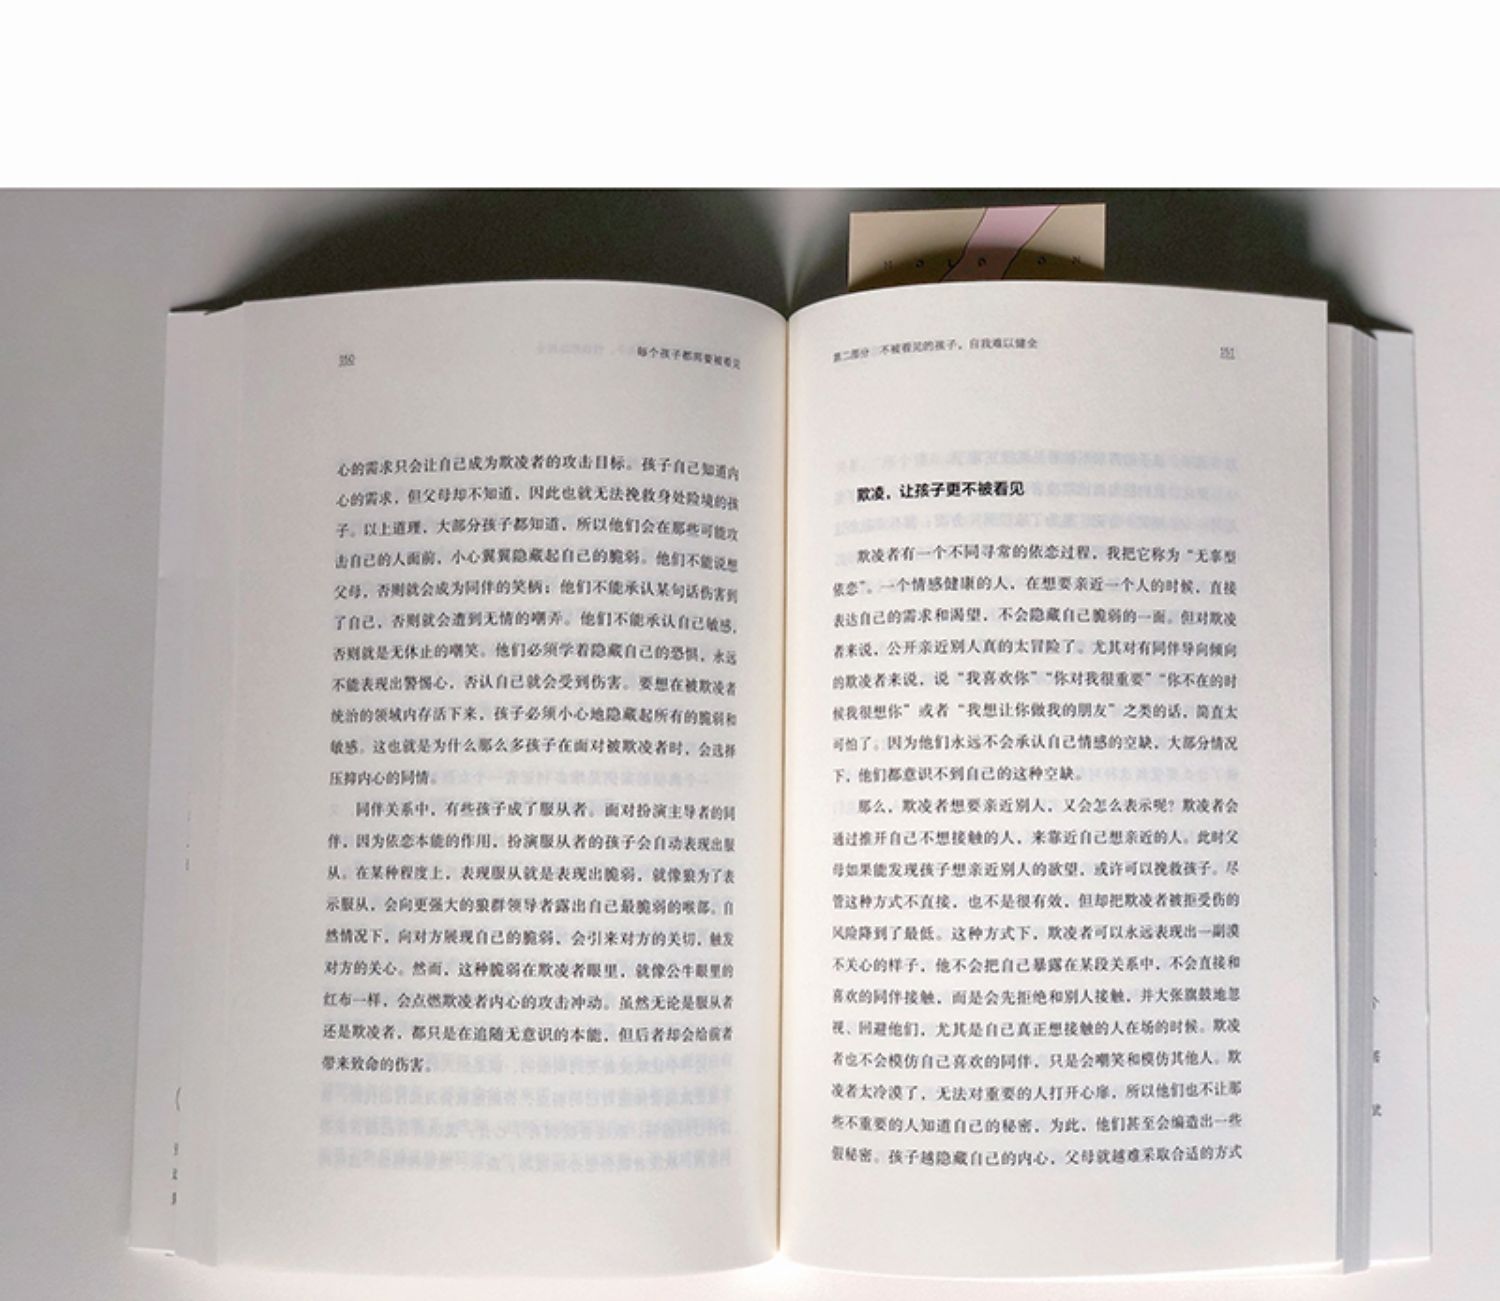 HOLD ON
150
每个孩子都需要被看见
心的需求只会让自己成为欺凌者的攻击目标。孩子自己知道内
心的需求，但父母却不知道，因此也就无法挽救身处险境的孩
子。以上道理，大部分孩子都知道，所以他们会在那些可能攻
击自己的人面前，小心翼翼隐藏起自己的脆弱。他们不能说想
父母，否则就会成为同伴的笑柄；他们不能承认某句话伤害到
了自己，否则就会遭到无情的嘲弄。他们不能承认自己敏感，
否则就是无休止的嘲笑。他们必须学着隐藏自己的恐惧，永远
不能表现出警惕心，否认自己就会受到伤害。要想在被欺凌者
统治的领域内存活下来，孩子必须小心地隐藏起所有的脆弱和
敏感。这也就是为什么那么多孩子在面对被欺凌者时，会选择
压抑内心的同情。
同伴关系中，有些孩子成了服从者。面对扮演主导者的同
伴，因为依恋本能的作用，扮演服从者的孩子会自动表现出服
从。在某种程度上，表现服从就是表现出脆弱，就像狼为了表
示服从，会向更强大的狼群领导者露出自己最脆弱的喉部。自
然情况下，向对方展现自己的脆弱，会引来对方的关切，触发
对方的关心。然而，这种脆弱在欺凌者眼里，就像公牛眼里的
红布一样，会点燃欺凌者内心的攻击冲动。虽然无论是服从者
还是欺凌者，都只是在追随无意识的本能，但后者却会给前者
带来致命的伤害。
第二部分 不被看见的孩子，自我难以健全
151
欺凌，让孩子更不被看见
欺凌者有一个不同寻常的依恋过程，我把它称为“无辜型
依恋”。一个情感健康的人，在想要亲近一个人的时候，直接
表达自己的需求和渴望，不会隐藏自己脆弱的一面。但对欺凌
者来说，公开亲近别人真的太冒险了。尤其对有同伴导向倾向
的欺凌者来说，说“我喜欢你”“你对我很重要”“你不在的时
候我很想你”或者“我想让你做我的朋友”之类的话，简直太
可怕了。因为他们永远不会承认自己情感的空缺，大部分情况
下，他们都意识不到自己的这种空缺。
那么，欺凌者想要亲近别人，又会怎么表示呢？欺凌者会
通过推开自己不想接触的人，来靠近自己想亲近的人。此时父
母如果能发现孩子想亲近别人的欲望，或许可以挽救孩子。尽
管这种方式不直接，也不是很有效，但却把欺凌者被拒受伤的
风险降到了最低。这种方式下，欺凌者可以永远表现出一副漠
不关心的样子，他不会把自己暴露在某段关系中，不会直接和
喜欢的同伴接触，而是会先拒绝和别人接触，并大张旗鼓地忽
视、回避他们，尤其是自己真正想接触的人在场的时候。欺凌
者也不会模仿自己喜欢的同伴，只是会嘲笑和模仿其他人。欺
凌者太冷漠了，无法对重要的人打开心扉，所以他们也不让那
些不重要的人知道自己的秘密，为此，他们甚至会编造出一些
假秘密。孩子越隐藏自己的内心，父母就越难采取合适的方式